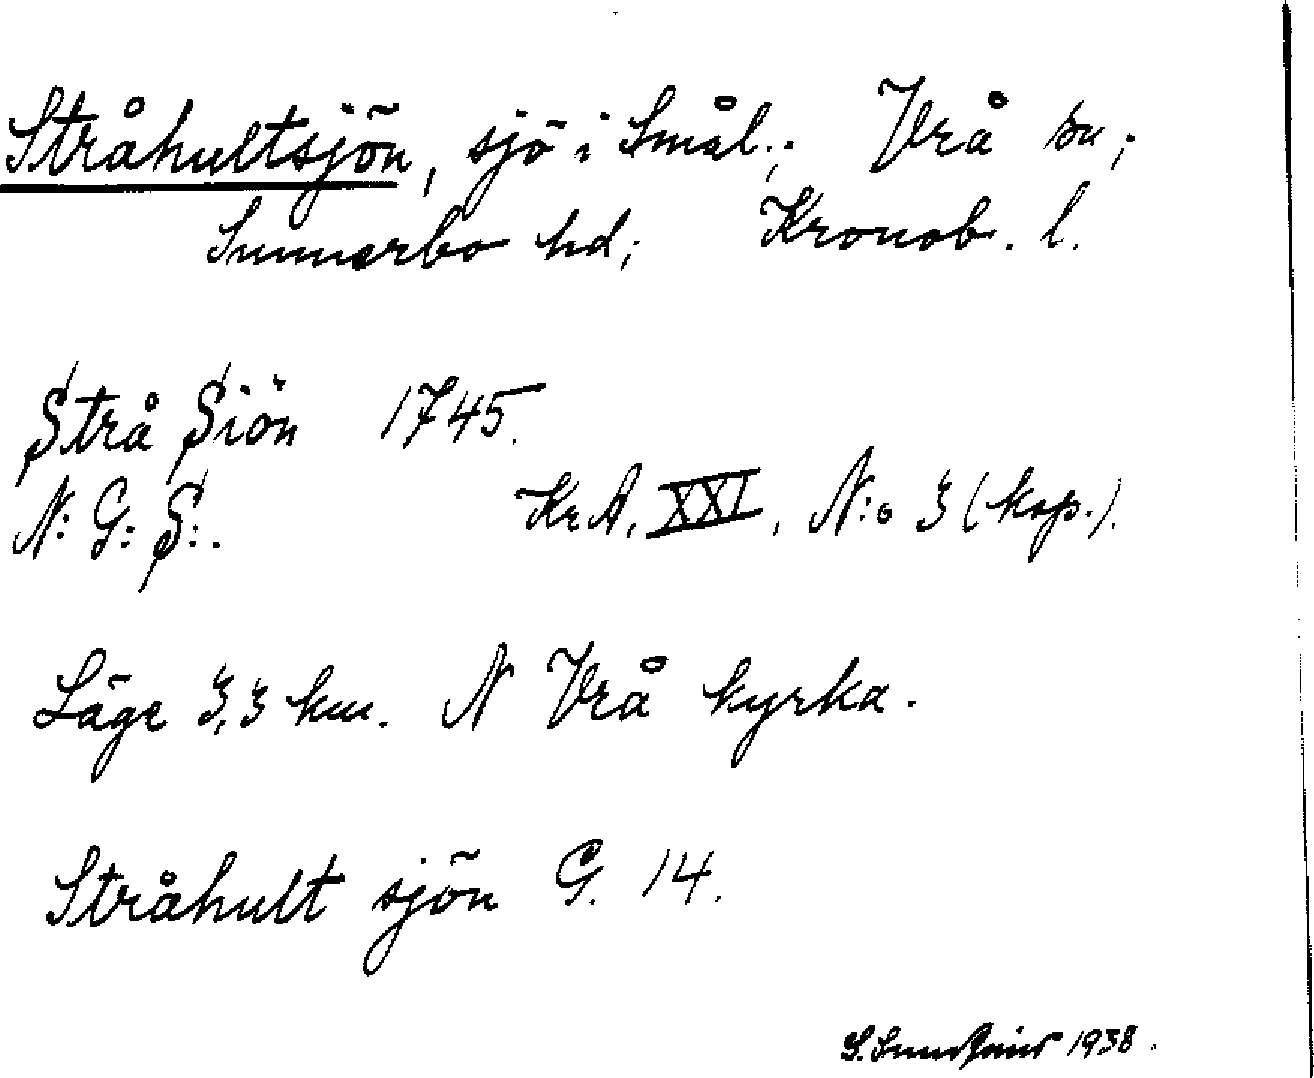 Stråhultsjön, sjö i Smål.; Vrå sn;
Sunnerbo hd; Kronob. l.
Strå Siön 1745.
N: G: S:. KrA, XXI, N:o 3 (kop.).
Läge 3,3 km. N Vrå kyrka.
Stråhult sjön G. 14.
S. 1938.